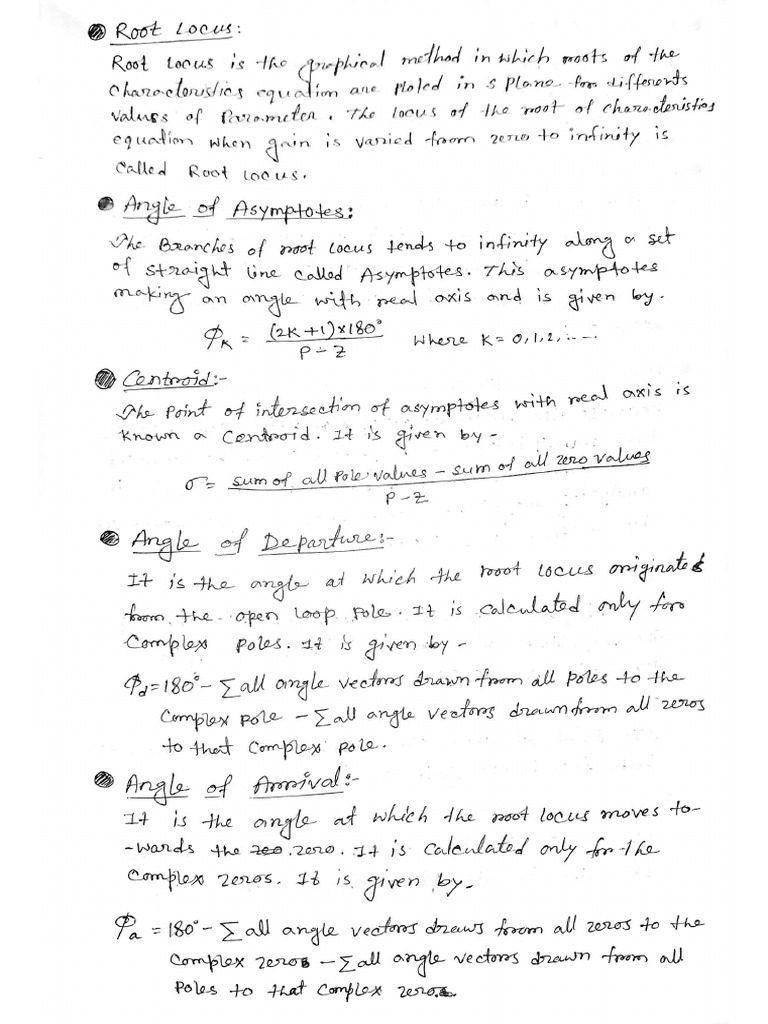 Root Locus:
Root locus is the graphical method in which roots of the
characteristics equation are ploted in s plane for differents
values of Parameter. The locus of the root of characteristics
equation when gain is varied from zero to infinity is
called Root locus.
Angle of Asymptotes:
The Branches of root locus tends to infinity along a set
of straight line called Asymptotes. This asymptotes
making an angle with real axis and is given by.
ΦK = (2K+1)×180° / P-Z where K = 0,1,2, .....
Centroid:-
The point of intersection of asymptotes with real axis is
known a Centroid. It is given by -
σ = sum of all Pole values - sum of all zero values / P-Z
Angle of Departure:-
It is the angle at which the root locus originates
from the open loop pole. It is calculated only for
Complex poles. It is given by -
Φd = 180° - Σ all angle vectors drawn from all poles to the
Complex pole - Σ all angle vectors drawn from all zeros
to that complex pole.
Angle of Arrival:-
It is the angle at which the root locus moves to-
-wards the zero. It is calculated only for the
Complex zeros. It is given by -
Φa = 180° - Σ all angle vectors draws from all zeros to the
Complex zeros - Σ all angle vectors drawn from all
Poles to that complex zero.